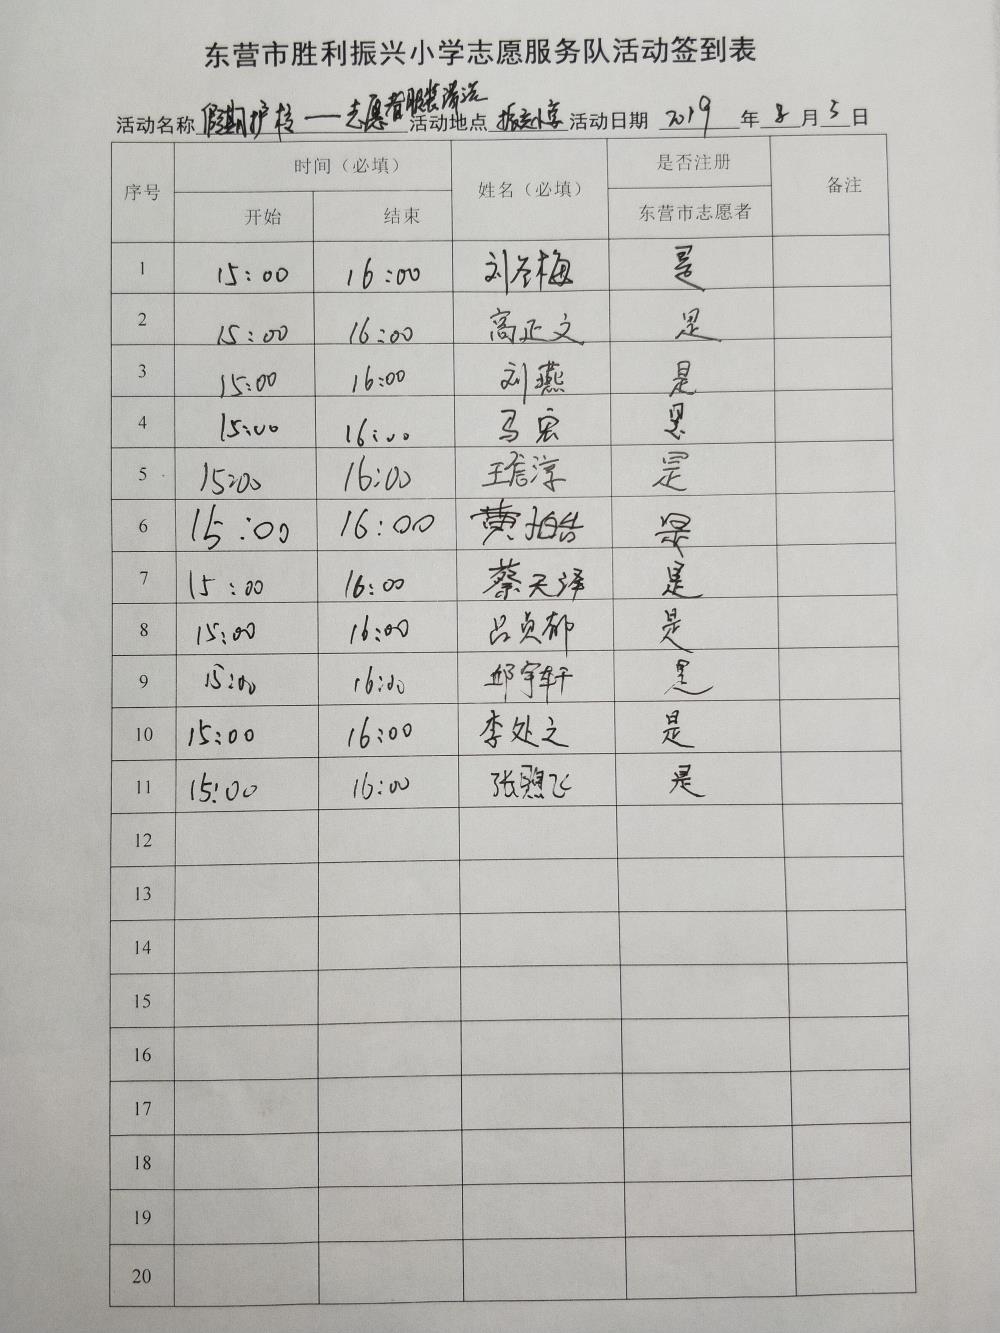 东营市胜利振兴小学志愿服务队活动签到表
活动名称 假期护校——志愿者服装清洗 活动地点 振兴小学 活动日期 2019 年 8 月 5 日
序号 时间（必填） 姓名（必填） 是否注册 备注
开始 结束 东营市志愿者
1 15:00 16:00 刘冬梅 是
2 15:00 16:00 高正文 是
3 15:00 16:00 刘燕 是
4 15:00 16:00 马宏 是
5 15:00 16:00 王詹淳 是
6 15:00 16:00 黄柏皓 是
7 15:00 16:00 蔡天泽 是
8 15:00 16:00 吕贞郁 是
9 15:00 16:00 邱宇轩 是
10 15:00 16:00 李处之 是
11 15:00 16:00 张飞 是
12
13
14
15
16
17
18
19
20